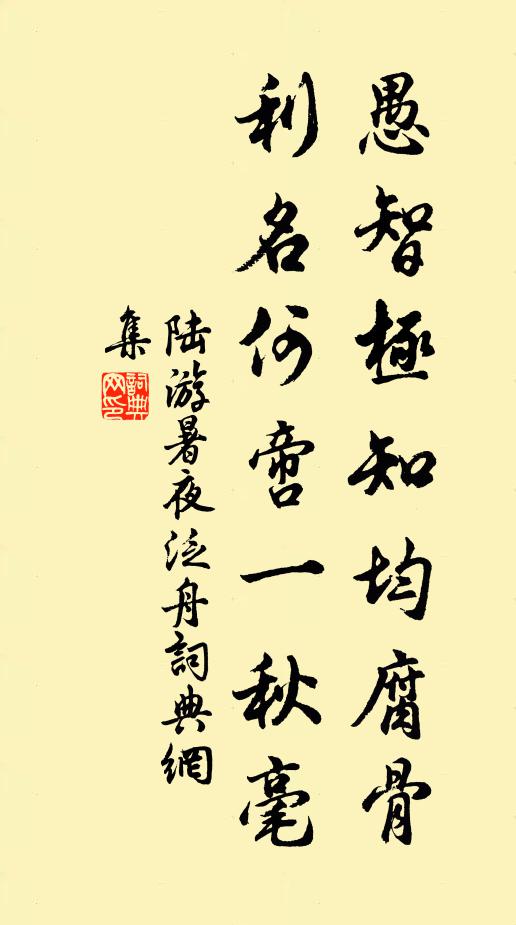 愚智極知均腐骨
利名何啻一秋毫
陆游暑夜泛舟詞典網
集
詞典网印